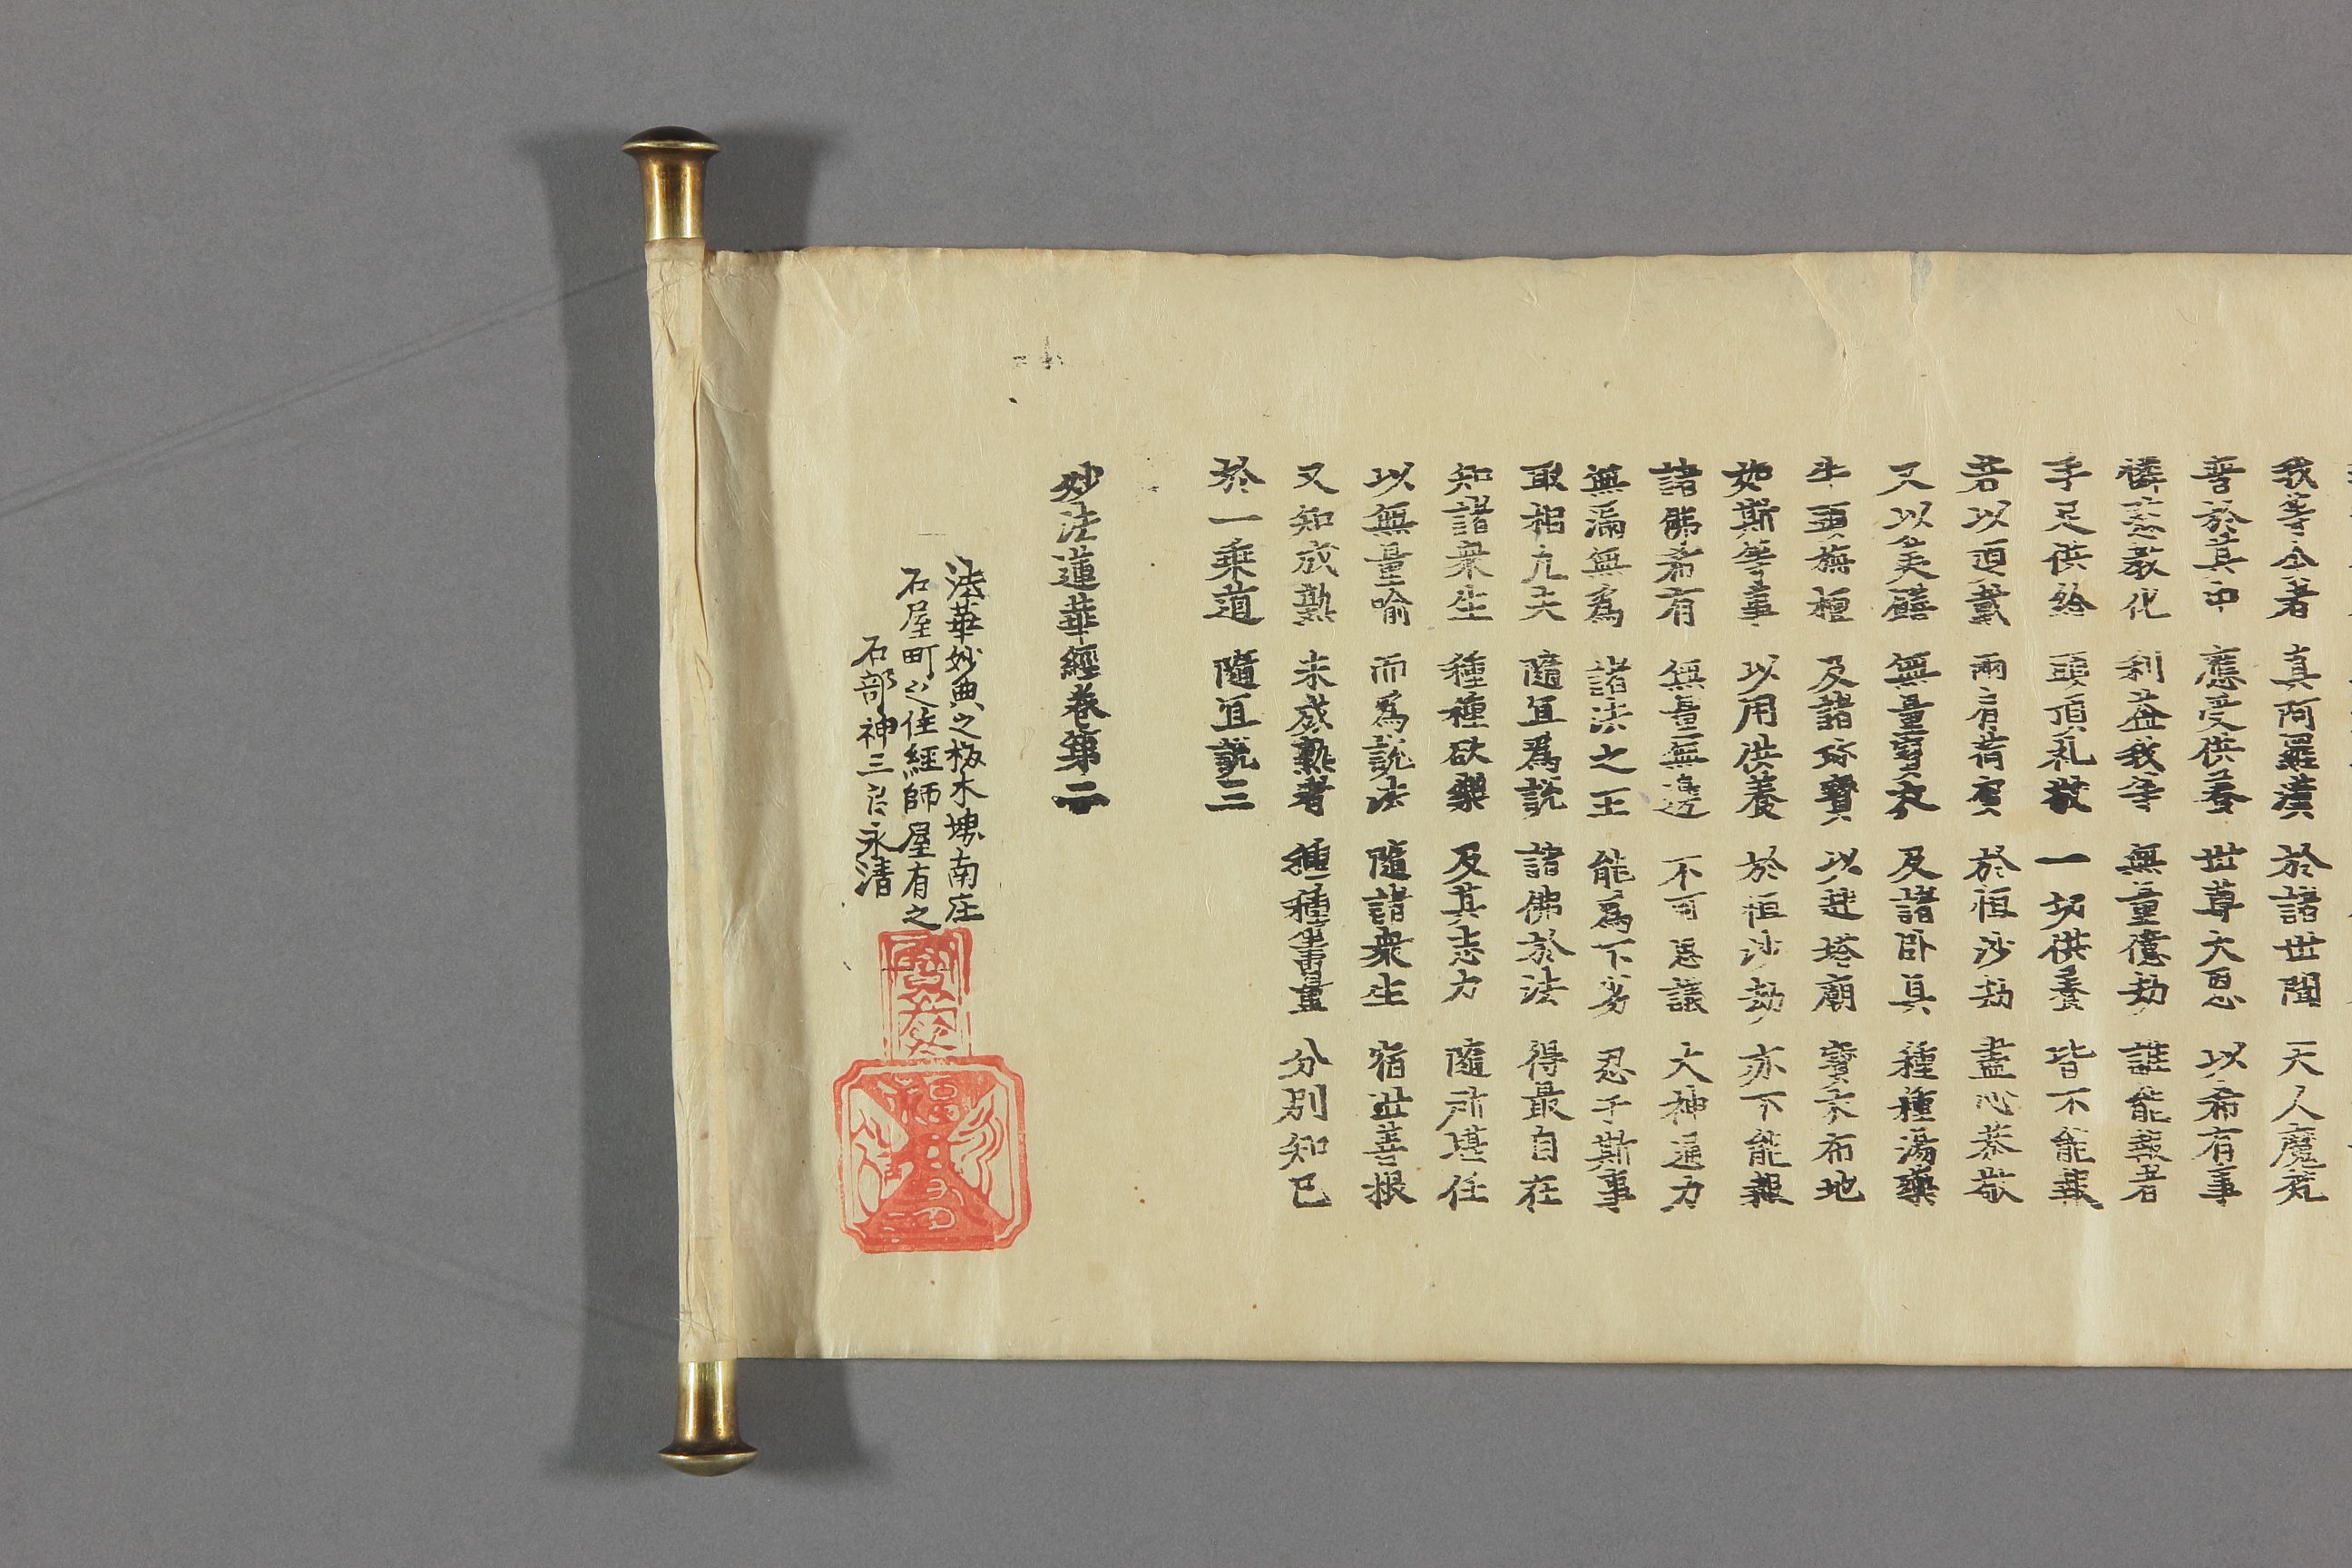 我等今者 真阿羅漢 於諸世間 天人魔梵
普於其中 應受供養 世尊大恩 以希有事
憐愍教化 利益我等 無量億劫 誰能報者
手足供給 頭頂礼敬 一切供養 皆不能報
若以頂戴 兩肩荷負 於恒沙劫 盡心恭敬
又以美膳 無量寶衣 及諸卧具 種種湯藥
牛頭栴檀 及諸珎寶 以起塔廟 寶衣布地
如斯等事 以用供養 於恒沙劫 亦不能報
諸佛希有 無量無邊 不可思議 大神通力
無漏無為 諸法之王 能為下劣 忍于斯事
取相凡夫 隨宜為説 諸佛於法 得最自在
知諸衆生 種種欲樂 及其志力 隨所堪任
以無量喻 而為説法 隨諸衆生 宿世善根
又知成熟 未成熟者 種種籌量 分別知已
於一乘道 隨宜説三
妙法蓮華經卷第二
法華妙典之板木堺南庄
石屋町之住經師屋有之
石部神三郎永清